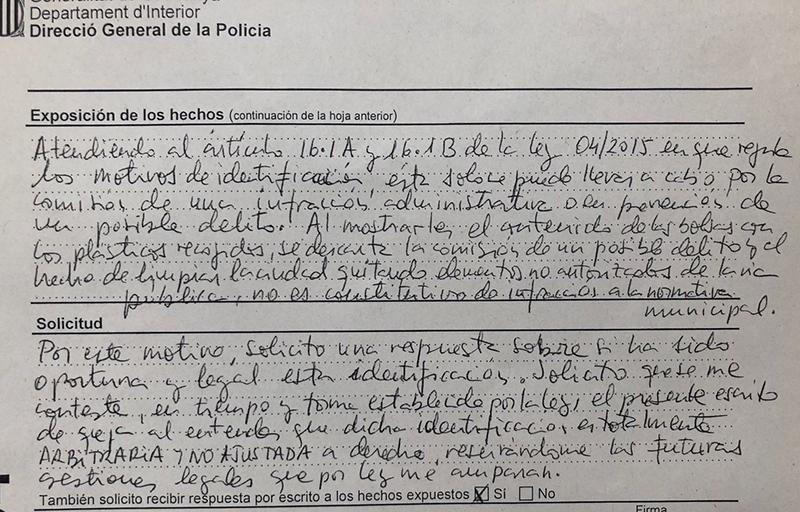 Departament d'Interior
Direcció General de la Policia
Exposición de los hechos (continuación de la hoja anterior)
Atendiendo al artículo 16.1A y 16.1B de la ley 04/2015 en que regula
los motivos de identificación, esta solo se puede llevar a cabo por la
comisión de una infracción administrativa o en presencia de
un posible delito. Al mostrarles el contenido de las bolsas con
los plásticos recogidos, se descarta la comisión de un posible delito y el
hecho de limpiar la ciudad quitando elementos no autorizados de la vía
pública, no es constitutivo de infracción a la normativa
municipal.
Solicitud
Por este motivo, solicito una respuesta sobre si ha sido
oportuna y legal esta identificación. Solicito que se me
conteste, en tiempo y forma establecido por la ley, el presente escrito
de queja al entender que dicha identificación es totalmente
ARBITRARIA Y NO AJUSTADA a derecho, reservándome las futuras
gestiones legales que por ley me amparan.
También solicito recibir respuesta por escrito a los hechos expuestos Sí No
Firma